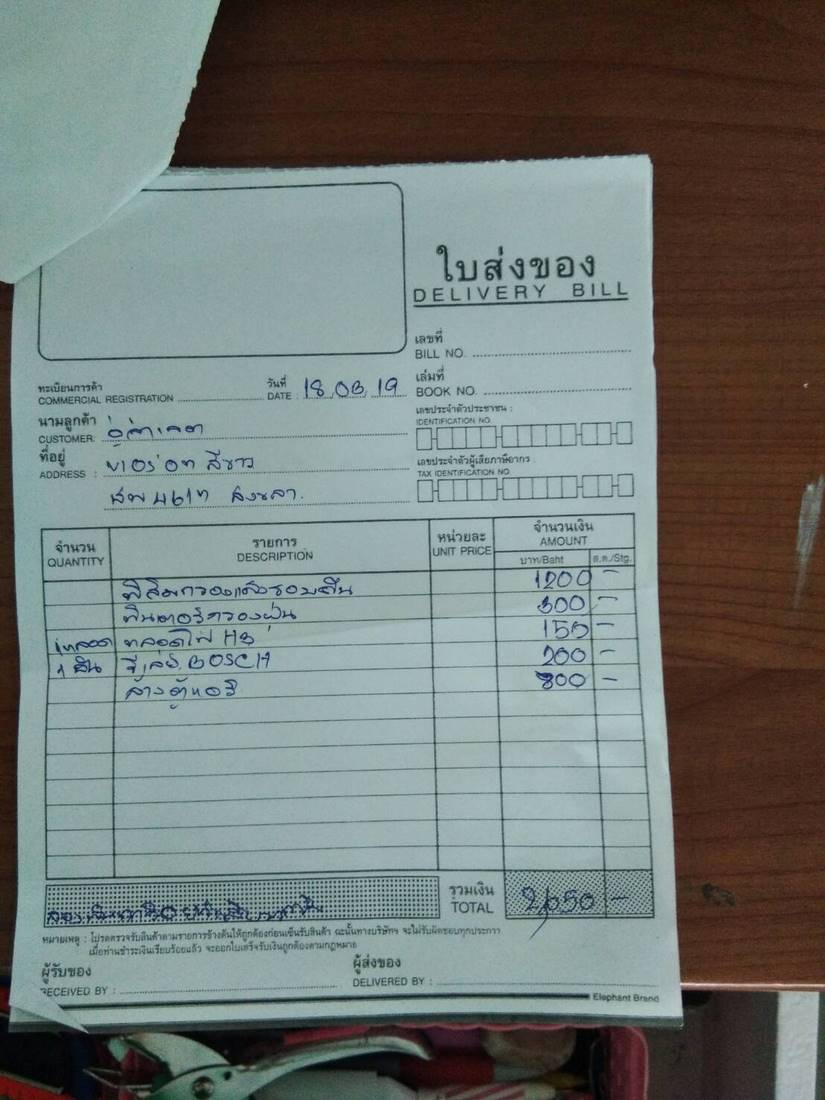 ใบส่งของ
DELIVERY BILL
เลขที่
BILL NO.
ทะเบียนการค้า
COMMERCIAL REGISTRATION
วันที่
DATE : 18.03.19
เล่มที่
BOOK NO.
นามลูกค้า
CUSTOMER:
เลขประจำตัวประชาชน :
IDENTIFICATION NO.
ที่อยู่
ADDRESS : สีขาว
เลขประจำตัวผู้เสียภาษีอากร :
TAX IDENTIFICATION NO.
สงขลา.
จำนวน
QUANTITY
รายการ
DESCRIPTION
หน่วยละ
UNIT PRICE
จำนวนเงิน
AMOUNT
บาท/Baht ส.ต./Stg.
ฟิล์มกรองแสงรอบคัน 1200 -
กรองฝุ่น 300 -
1 หลอด หลอดไฟ HB 150 -
1 อัน รีเลย์ BOSCH 200 -
ล้างตู้แอร์ 800 -
รวมเงิน
TOTAL 2,650 -
หมายเหตุ : โปรดตรวจรับสินค้าตามรายการข้างต้นให้ถูกต้องก่อนเซ็นรับสินค้า ฉะนั้นทางบริษัทฯ จะไม่รับผิดชอบทุกประการ
เมื่อท่านชำระเงินเรียบร้อยแล้ว จะออกใบเสร็จรับเงินถูกต้องตามกฎหมาย
ผู้รับของ
RECEIVED BY :
ผู้ส่งของ
DELIVERED BY :
Elephant Brand